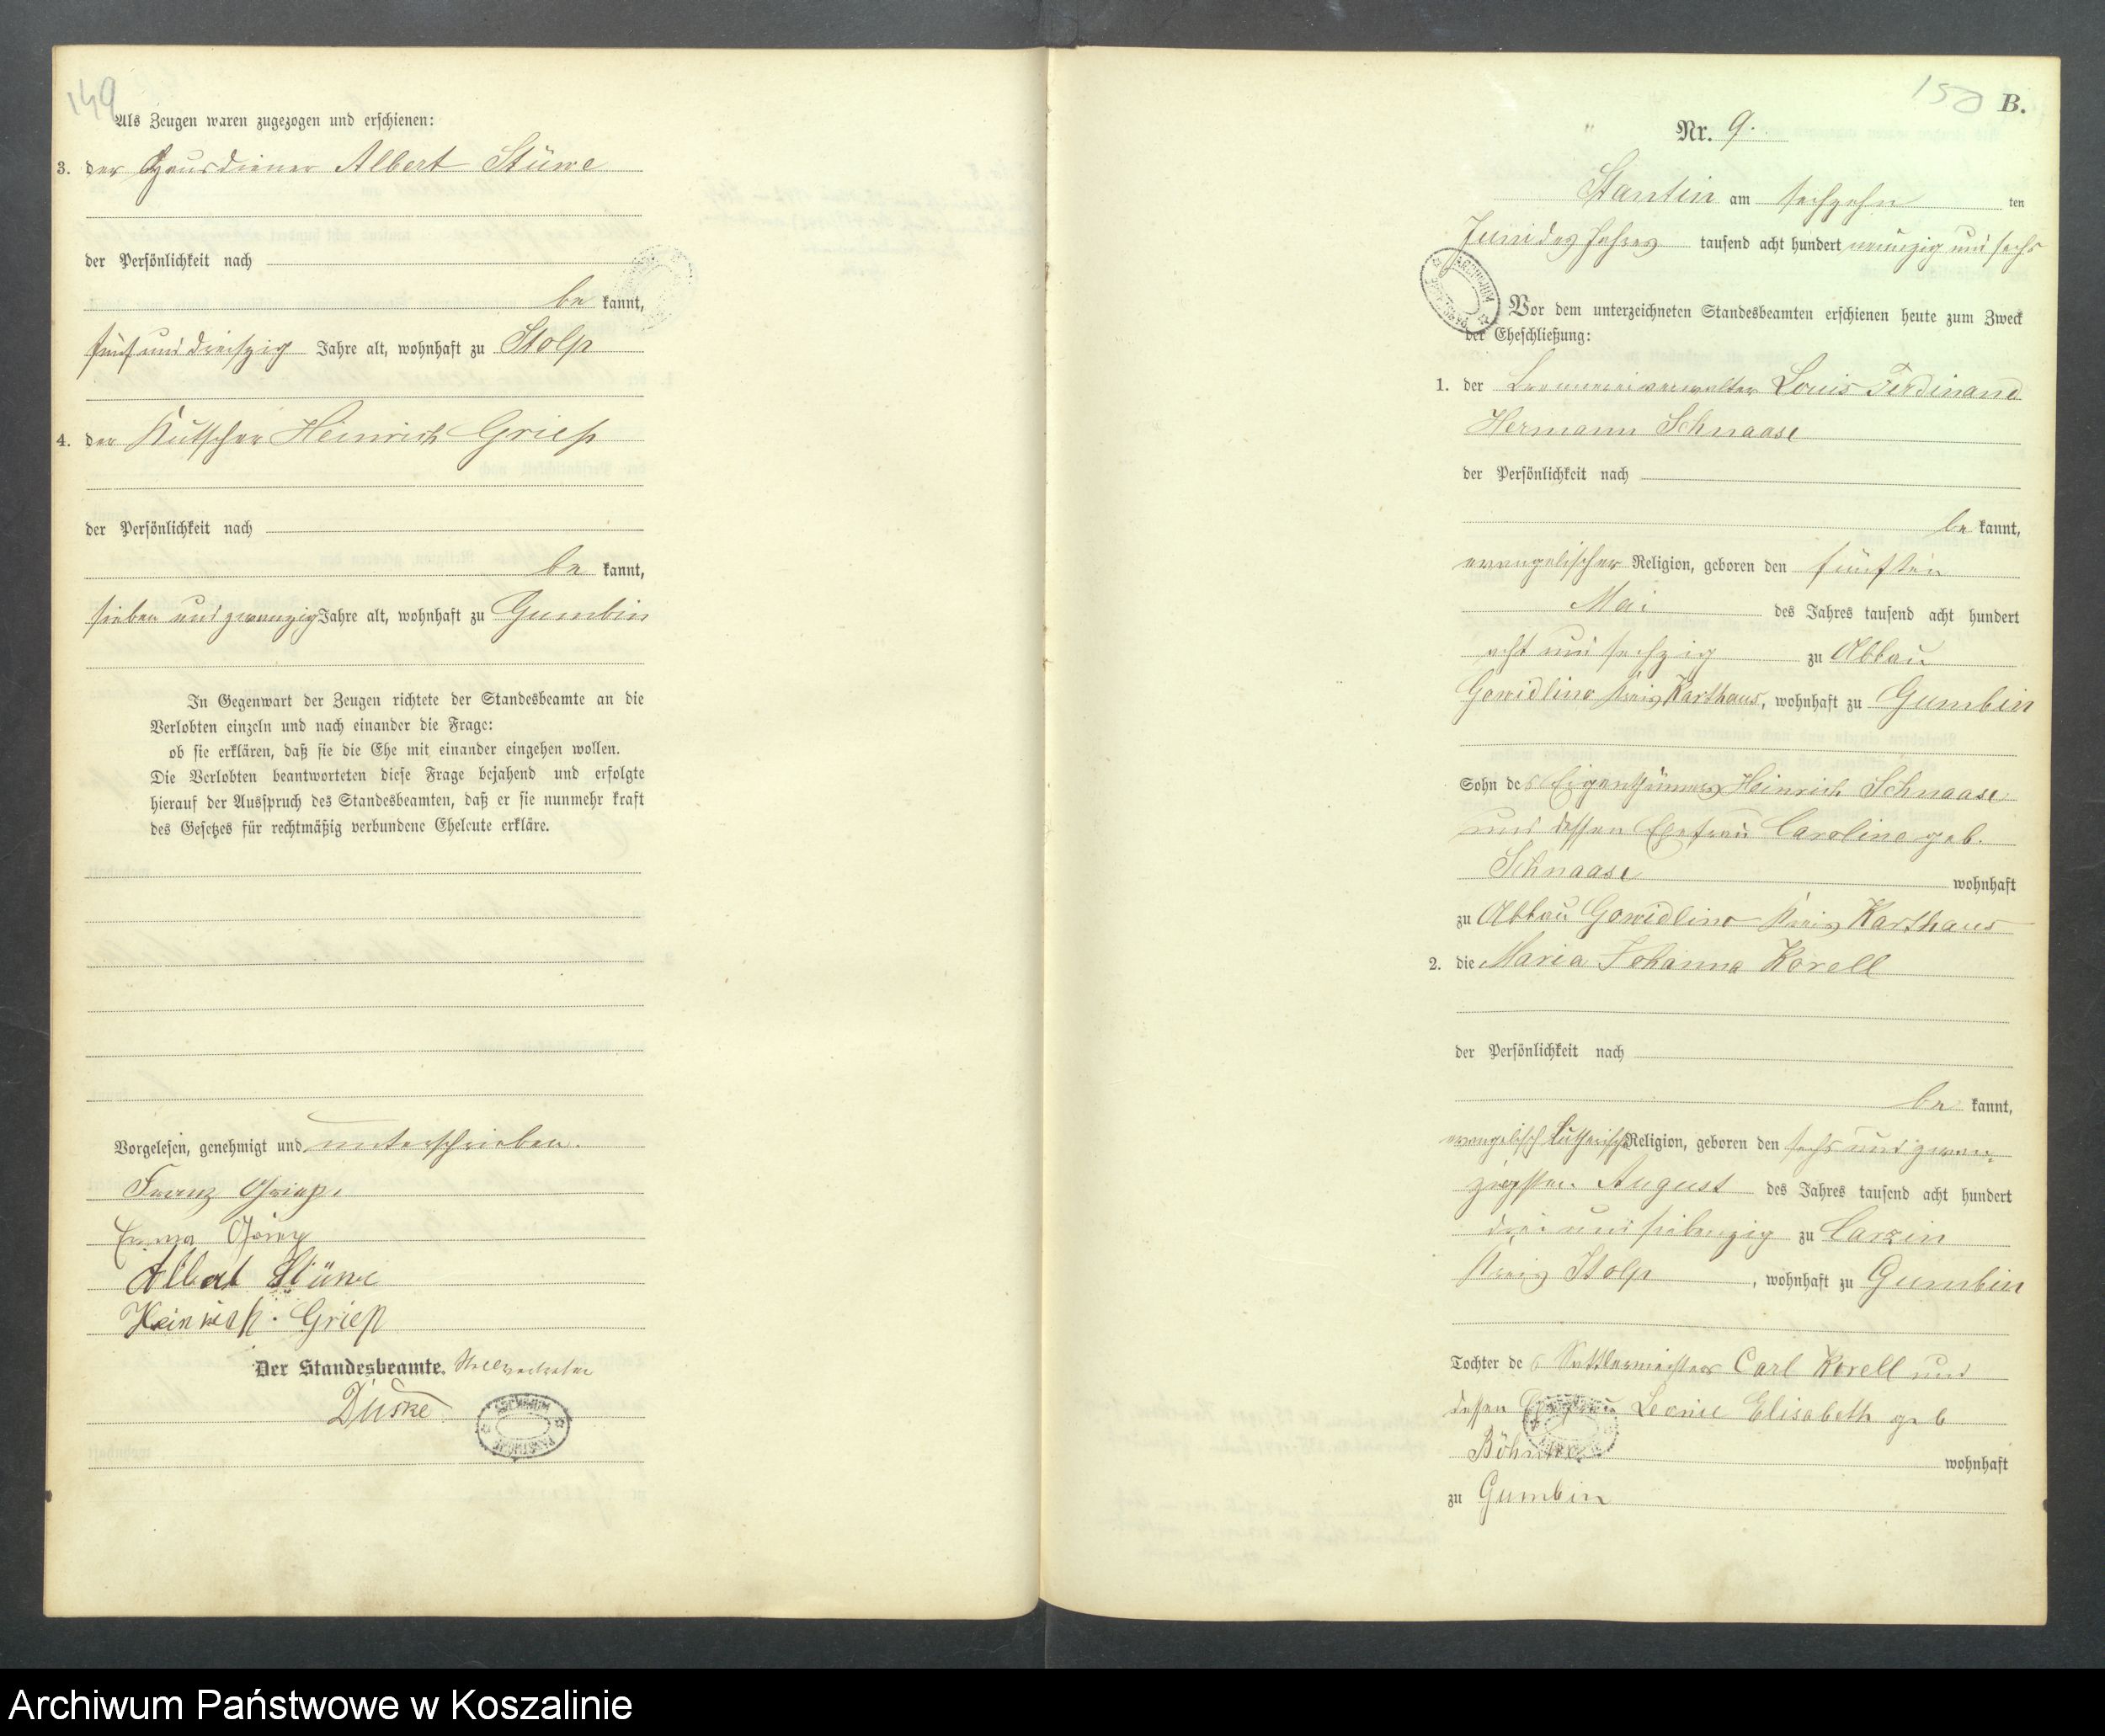 149
Als Zeugen waren zugezogen und erschienen:
3. der Hausdiener Albert Stüwe
der Persönlichkeit nach
be kannt,
fünf und dreißzig Jahre alt, wohnhaft zu Stolp
4. der Kutscher Heinrich Grieß
der Persönlichkeit nach
be kannt,
sieben und zwanzig Jahre alt, wohnhaft zu Gumbin
In Gegenwart der Zeugen richtete der Standesbeamte an die
Verlobten einzeln und nach einander die Frage:
ob sie erklären, daß sie die Ehe mit einander eingehen wollen.
Die Verlobten beantworteten diese Frage bejahend und erfolgte
hierauf der Ausspruch des Standesbeamten, daß er sie nunmehr kraft
des Gesetzes für rechtmäßig verbundene Eheleute erkläre.
wohnhaft
Vorgelesen, genehmigt und unterschrieben.
Franz
Emma
Albert Stüwe
Heinrich Grieß
Der Standesbeamte. Stellvertreter
Duske
150 B.
Nr. 9.
Stantin am sechzehn ten
Juni des Jahres tausend acht hundert neunzig und sechs
Vor dem unterzeichneten Standesbeamten erschienen heute zum Zweck
der Eheschließung:
1. der Brennereiverwalter Louis Ferdinand
Hermann Schnaase
der Persönlichkeit nach
be kannt,
evangelischer Religion, geboren den fünften
Mai des Jahres tausend acht hundert
acht und sechzig zu Abbau
Gowidlino Kreis Karthaus, wohnhaft zu Gumbin
Sohn des Eigenthümers Heinrich Schnaase
und dessen Ehefrau Caroline geb.
Schnaase wohnhaft
zu Abbau Gowidlino Kreis Karthaus
2. die Maria Johanna Korell
der Persönlichkeit nach
be kannt,
evangelisch lutherisch Religion, geboren den sechs und zwan-
zigsten August des Jahres tausend acht hundert
drei und siebenzig zu Carzin
Kreis Stolp, wohnhaft zu Gumbin
Tochter des Sattlermeisters Carl Korell und
dessen Ehefrau Leonie Elisabeth geb
wohnhaft
zu Gumbin
Archiwum Państwowe w Koszalinie